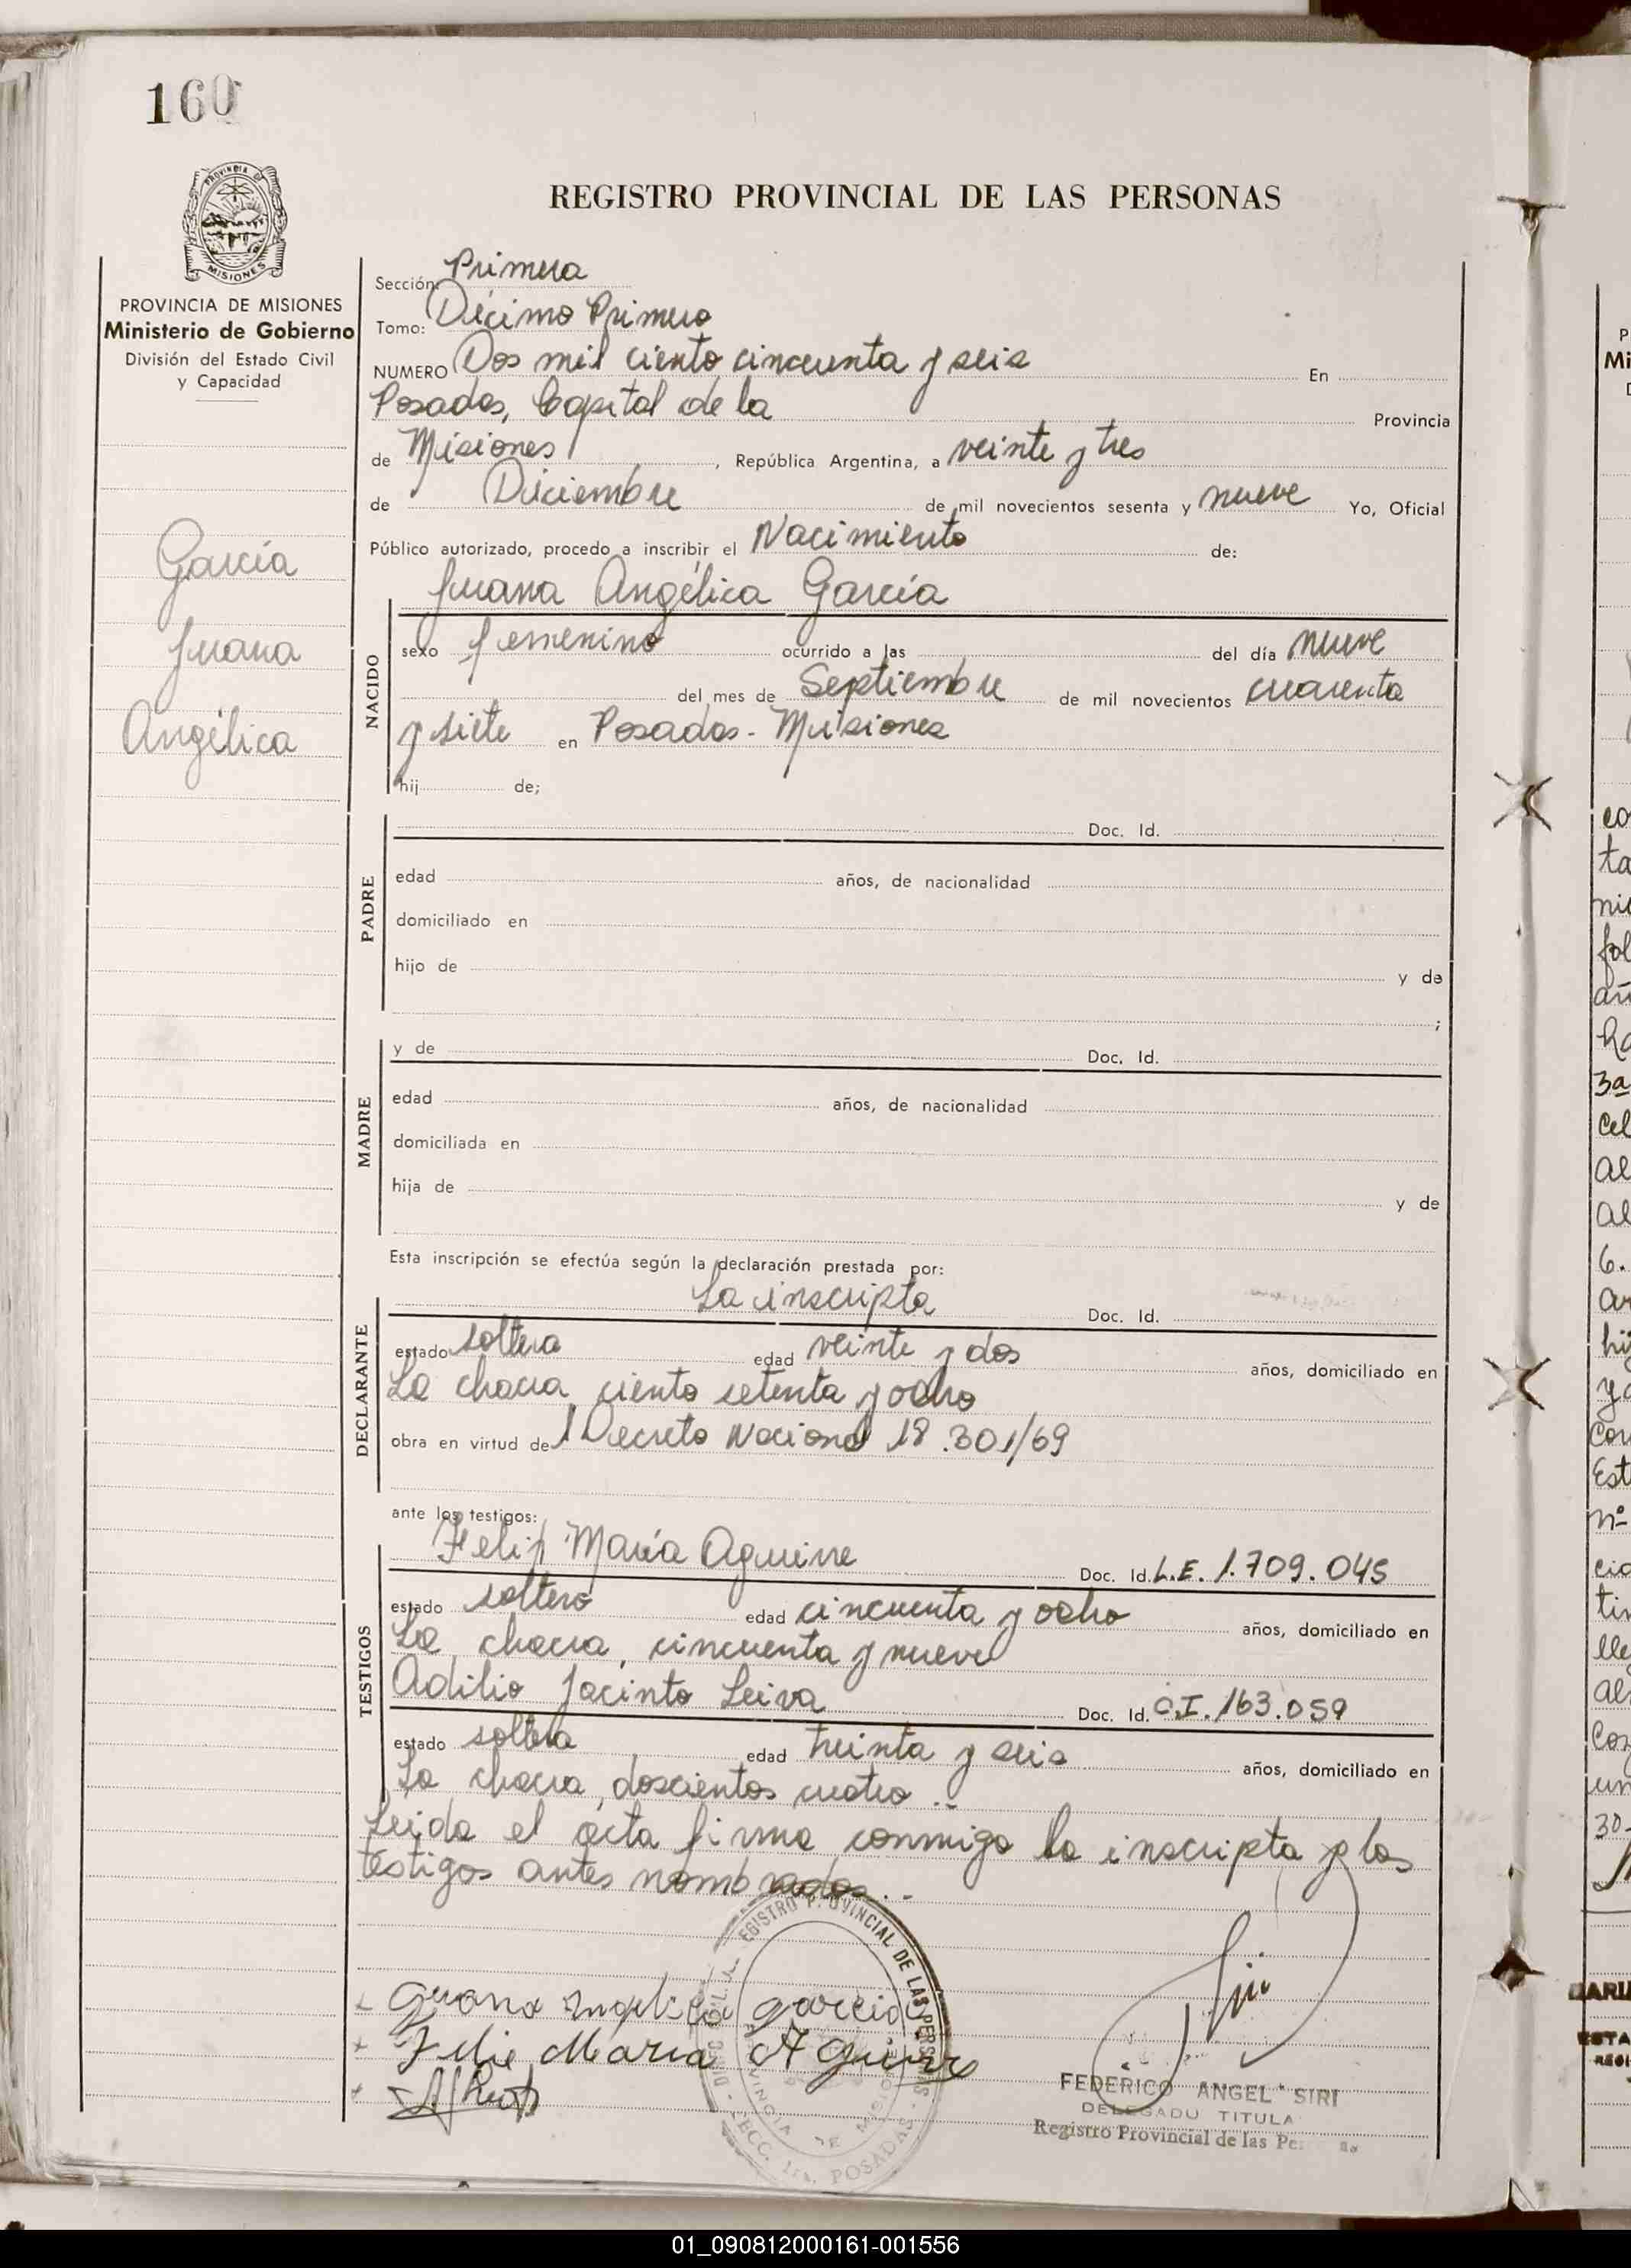 160
PROVINCIA DE
MISIONES
REGISTRO PROVINCIAL DE LAS PERSONAS
PROVINCIA DE MISIONES
Ministerio de Gobierno
División del Estado Civil
y Capacidad
García
Juana
Angélica
Sección: Primera
Tomo: Décimo Primero
NUMERO Dos mil ciento cincuenta y seis En
Posadas, Capital de la Provincia
de Misiones, República Argentina, a veinte y tres
de Diciembre de mil novecientos sesenta y nueve Yo, Oficial
Público autorizado, procedo a inscribir el Nacimiento de:
Juana Angélica García
NACIDO
sexo femenino ocurrido a las del día nueve
del mes de Septiembre de mil novecientos cuarenta
y siete en Posadas - Misiones
hij de;
PADRE
Doc. Id.
edad años, de nacionalidad
domiciliado en
hijo de y de
;
MADRE
y de Doc. Id.
edad años, de nacionalidad
domiciliada en
hija de y de
Esta inscripción se efectúa según la declaración prestada por:
DECLARANTE
La inscripta Doc. Id.
estado soltera edad veinte y dos años, domiciliado en
La chacra ciento setenta y ocho
obra en virtud del Decreto Nacional 18.301/69
ante los testigos:
TESTIGOS
Felip María Aguirre Doc. Id. L.E. 1.709.045
estado soltero edad cincuenta y ocho años, domiciliado en
La chacra, cincuenta y nueve
Adilio Jacinto Leiva Doc. Id. C.I. 163.059
estado soltera edad treinta y seis años, domiciliado en
La chacra, doscientos cuatro..-
Leida el acta firma conmigo la inscripta y los
testigos antes nombrados..-
Juana Angelica Garcia
Felip Maria Aguirre
REGISTRO PROVINCIAL DE LAS PERSONAS
PROVINCIA DE MISIONES
SECC. 1ra. POSADAS
FEDERICO ANGEL SIRI
DELEGADO TITULA
Registro Provincial de las Pe
P
Mi
co
ta
fol
ha
3a
cel
al
al
6.
hi
Est
nº
al
un
30-
01_090812000161-001556